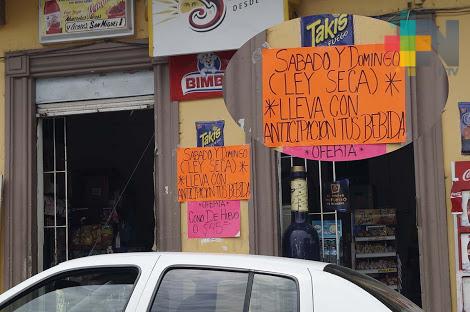 y Carnes SAN MIGUEL !
DESDE
BIMBO
Takis
SABADO Y DOMINGO
(LEY SECA)
*LLEVA CON
ANTICIPACION TUS BEBIDA
*OFERTA*
CONO DE HUEVO
$45
Takis
FUEGO
SABADO Y DOMINGO
(LEY SECA) *
*LLEVA CON
ANTICIPACION TUS BEBIDA
*OFERTA*
TV